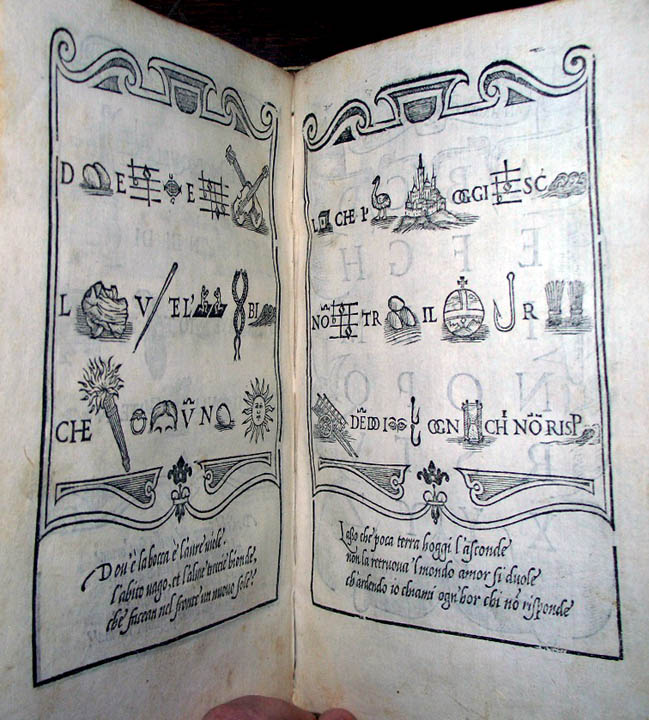 D E E
L V EL' BI
CHE ṼN
Dou'è la bocca è l'aure
l'abito uago, et l'alme treccie bionde,
che facean nel fronte un nuouo sole?
L CHE L' OGGI SC
NO TR IL R
DE DO I OGN CH NO RISP
Lasso che poca terra hoggi l'asconde
non la retruoua 'l mondo amor si duole
ch'ardendo io chiami ogn'hor chi nõ risponde